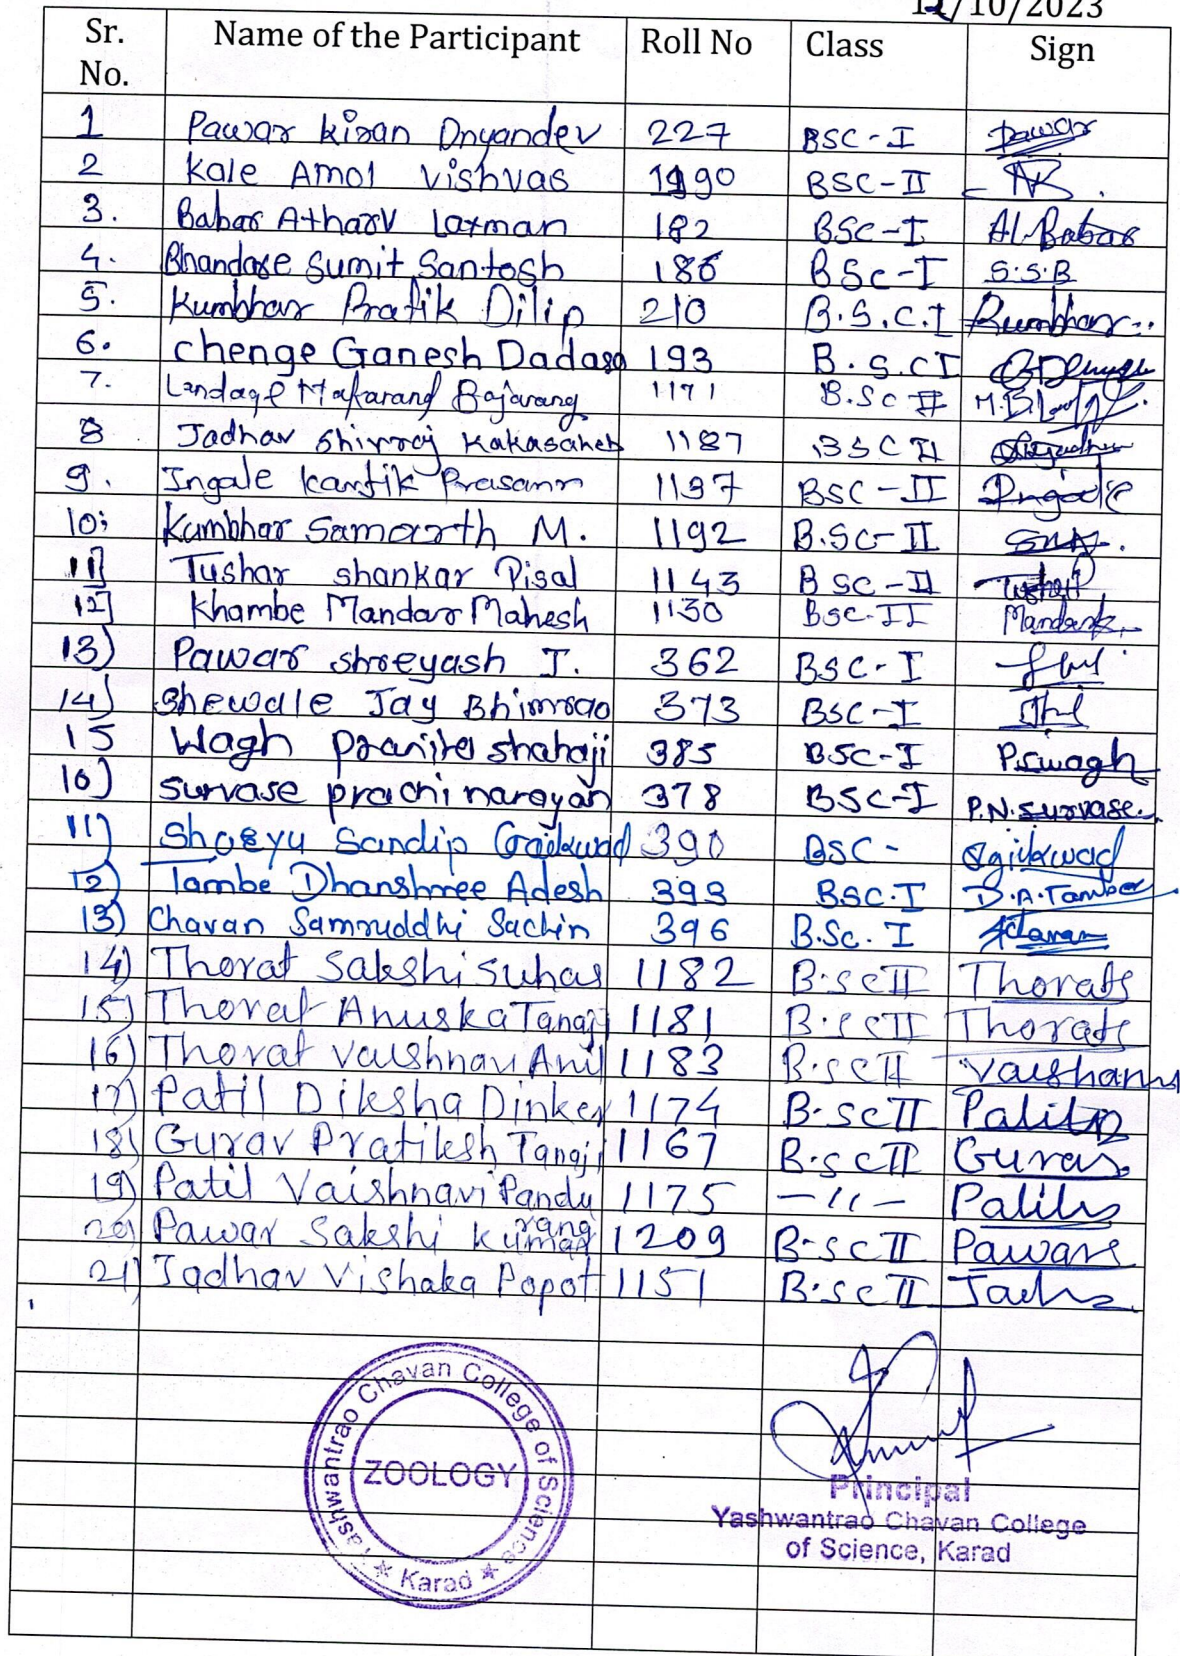 /10/2023
Sr. No. Name of the Participant Roll No Class Sign
1 Pawar kiran Dnyandev 227 BSC-I Pawar
2 Kale Amol Vishvas 1190 BSC-II
3. Babar Atharv Laxman 182 BSC-I Al-Babar
4. Bhandare Sumit Santosh 186 BSc-I S.S.B
5. Kumbhar Pratik Dilip 210 B.S.C.I Kumbhar
6. Chenge Ganesh Dadaso 193 B.S.CI
7. Landage Makarand Bajarang 1171 B.Sc II
8 Jadhav Shivraj Kakasaheb 1187 BSC II
9. Ingale kartik Prasann 1197 BSC-II Ingale
10: Kumbhar Samarth M. 1192 B.SC-II
11] Tushar shankar Pisal 1143 B SC-II Tushar
12] Khambe Mandar Mahesh 1130 BSC-II
13) Pawar shreyash J. 362 BSC-I
14) Shewale Jay Bhimrao 373 BSC-I
15 Wagh shahaji 385 BSC-I P.S.wagh
10) Survase prachi narayan 378 BSC-I P.N.Survase.
11) Sandip Gaikwad 390 BSC-
12) Tambe Dhanshree Adesh 393 BSC.I D.A.Tambe
13) Chavan Samruddhi Sachin 396 B.Sc.I
14) Thorat Sakshi Suhas 1182 B.scII Thorats
15) Thorat Anuska Tanaji 1181 B.scII Thorats
16) Thorat Vaishnavi Anil 1183 B.scII
17) Patil Diksha Dinker 1174 B.scII
18) Gurav Pratiksh Tanaji 1167 B.scII
19) Patil Vaishnavi Pandu 1175 -11-
rang
20) Pawar Sakshi Kumar 1209 B.scII Pawars
21) Jadhav Vishaka Popot 1151 B.scII
Yashwantrao Chavan College of Science
ZOOLOGY
★ Karad ★
Principal
Yashwantrao Chavan College
of Science, Karad